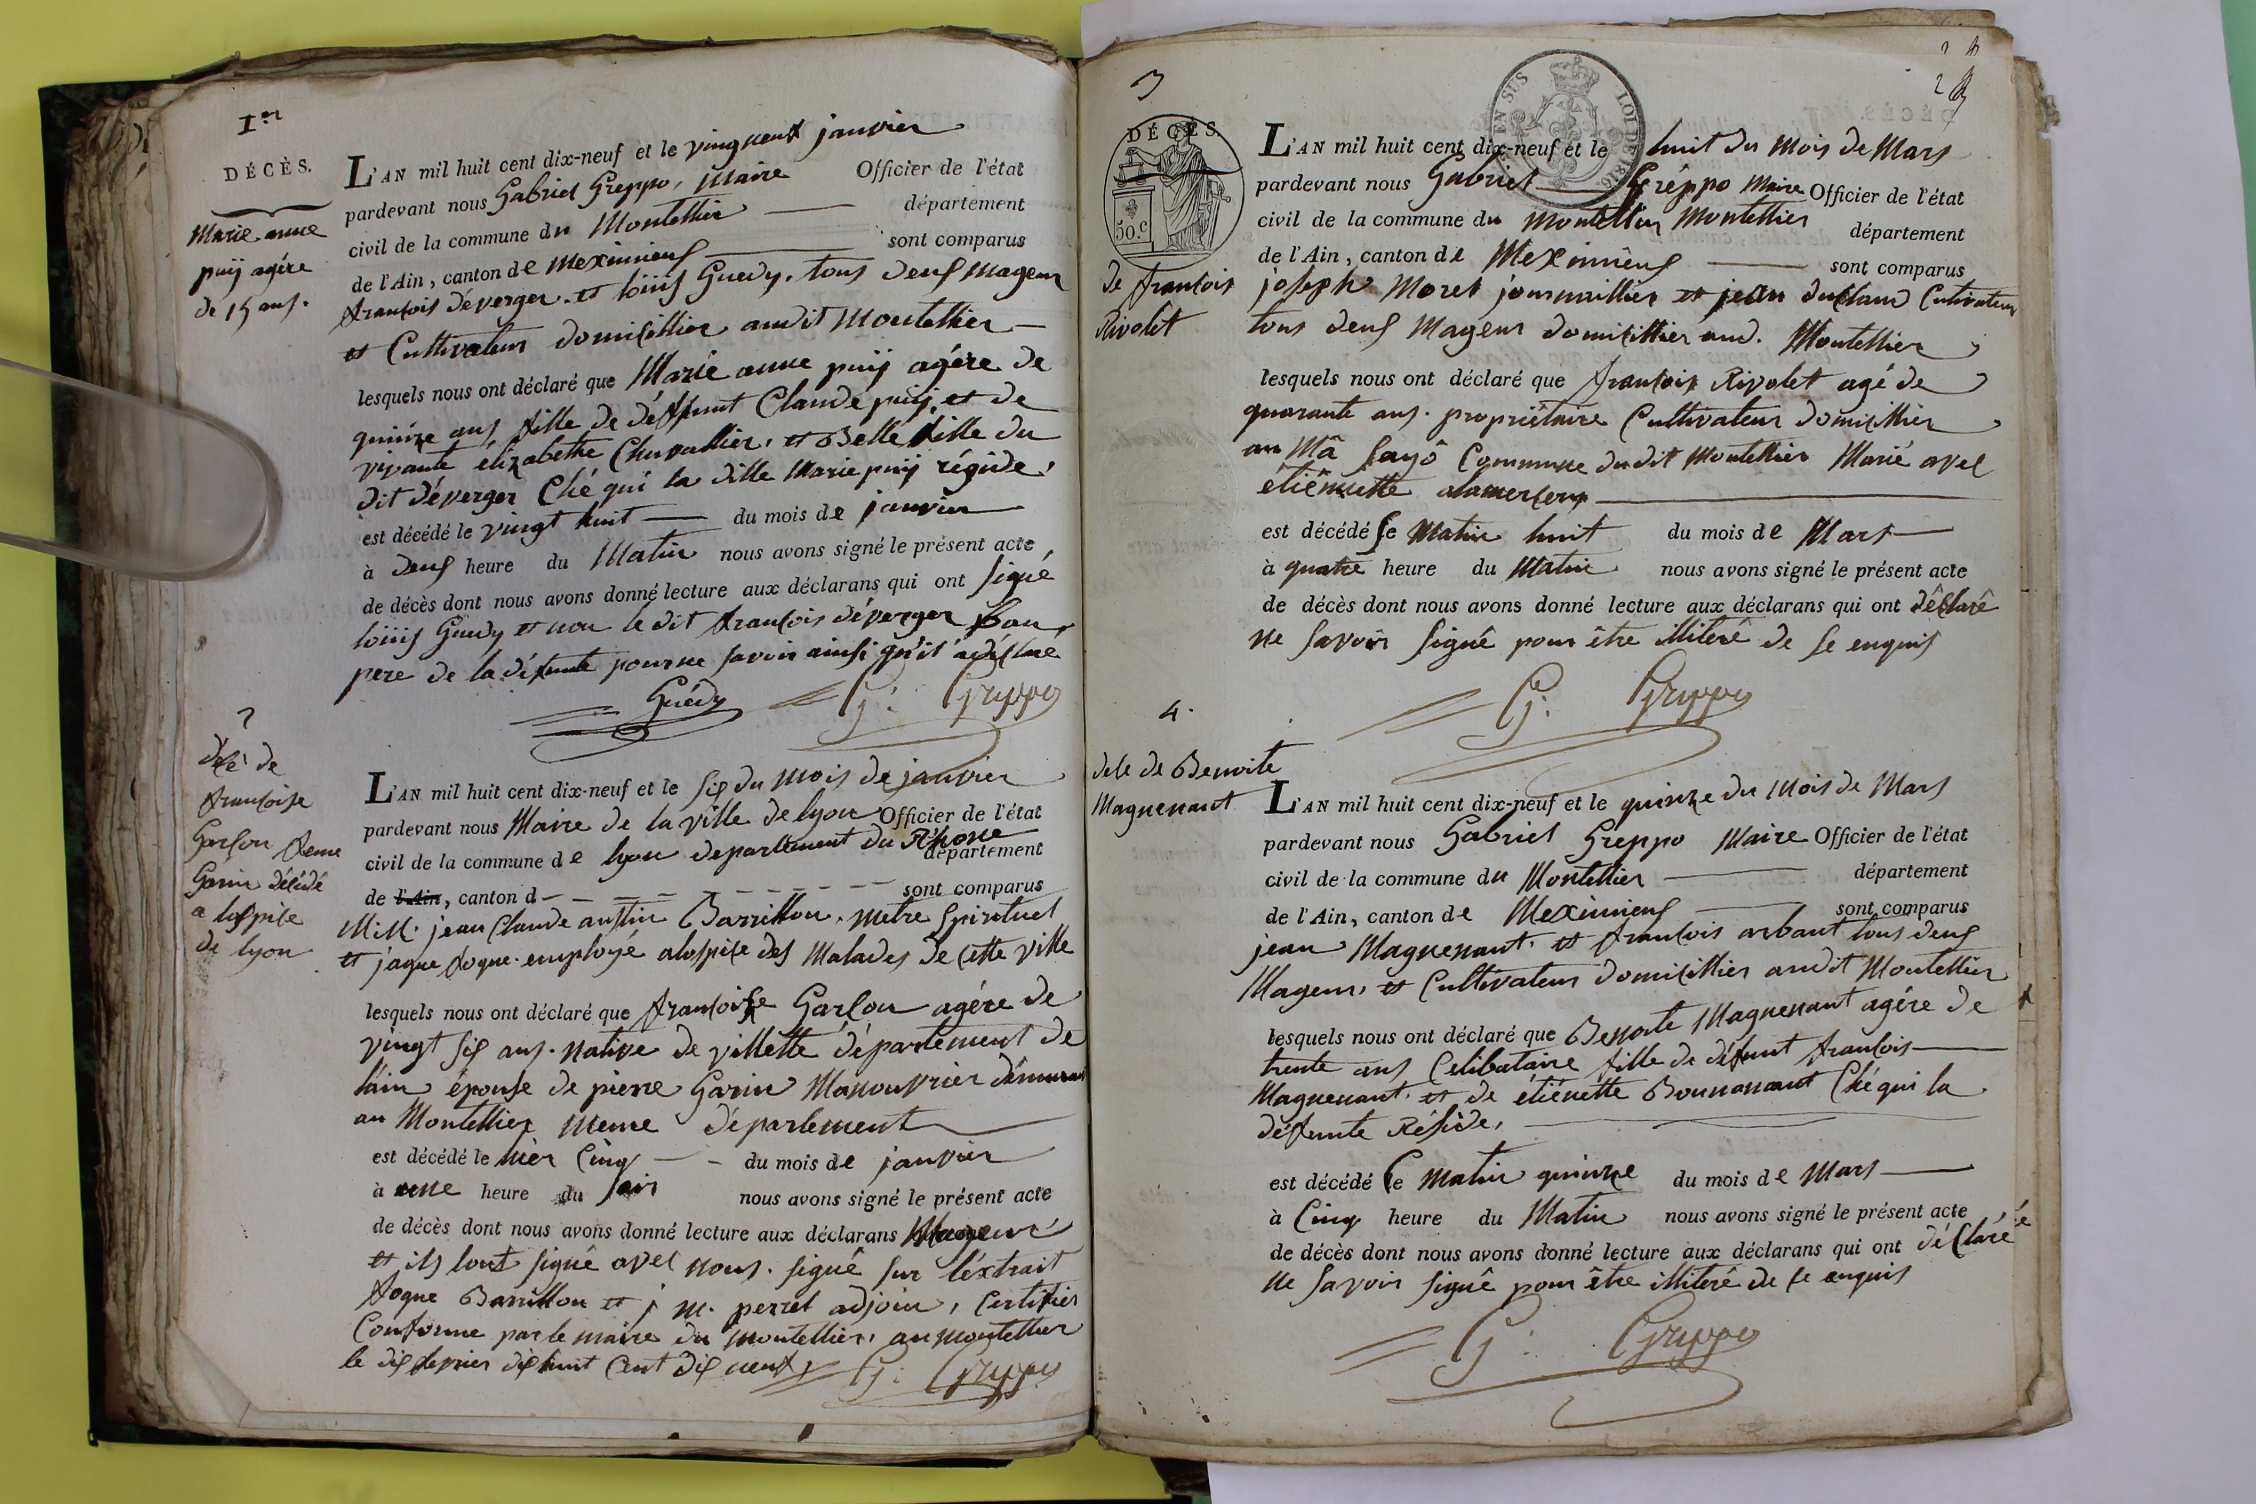 1er
DÉCÈS.
Marie anne
puij agére
de 15 ans.
L'AN mil huit cent dix-neuf et le vingneuf janvier
pardevant nous Gabriel Greppo, Maire Officier de l'état
civil de la commune du Montellier département
de l'Ain, canton de Meximieuf sont comparus
françois déverger. et loüis Guedy. tous deuf mageur
et Cultivateur domicillier audit Montellier
lesquels nous ont déclaré que Marie anne puij agére de
quinze ans fille de déffunt Claude puij, et de
vivante élizabethe Chuvallier, et Belle fille du
dit déverger Ché qui la dille Marie puij régide,
est décédé le vingt huit du mois de janvier
à deuf heure du Matin nous avons signé le présent acte
de décès dont nous avons donné lecture aux déclarans qui ont signé
loüis Guedy et non le dit françois déverger Bau
pere de la défunte pour ne savoir ainsi qu'il a déclaré
Guédy G: Greppo
2
décé de
françoise
Garçon feme
Garin décédé
a lospice
de lyon
L'AN mil huit cent dix-neuf et le six du mois de janvier
pardevant nous Maire de la ville de lyon Officier de l'état
civil de la commune de lyon departement du Rhone département
de l'Ain, canton d sont comparus
M.M. jean Claude austin Barrillon, metre spirituel
et jaque fogue employé alospice des Malades de cette ville
lesquels nous ont déclaré que françoise Garçon agére de
vingt six ans. native de villette département de
lain épouse de pierre Garin Manouvrier démurant
au Montellier meme département
est décédé le hier cinq du mois de janvier
à une heure du soir nous avons signé le présent acte
de décès dont nous avons donné lecture aux déclarans Mageur
et ils lont signé avec nous. signé sur l'éxtrait
fogue Barrillon et j m. perret adjoin, certifier
Conforme par le maire du montellier, au montellier
le dix fevrier dix huit cent dix neuf G: Greppo
3
DÉCÈS.
50.c
EN SUS
LOI DE 1816
2
de françois
Rivolet
L'AN mil huit cent dix-neuf et le huit du mois de Mars
pardevant nous Gabriel Gréppo Maire Officier de l'état
civil de la commune du Montellier Montellier département
de l'Ain, canton de Meximieuf sont comparus
joseph Morel journaillier et jean duclaud Cultivateur
tous deuf Mageur domicillier aud. Montellier
lesquels nous ont déclaré que françois Rivolet agé de
quarante ans. propriétaire Cultivateur domicillier
au Mâ sayô Commune dudit Montellier Marié avec
étiénnette
est décédé ce Matin huit du mois de Mars
à quatre heure du Matin nous avons signé le présent acte
de décès dont nous avons donné lecture aux déclarans qui ont déclaré
ne savoir signé pour être illiteré de se enquis
G: Greppo
4.
décé de Benoite
Maguenaut
L'AN mil huit cent dix-neuf et le quinze du Mois de Mars
pardevant nous Gabriel Greppo Maire Officier de l'état
civil de la commune du Montellier département
de l'Ain, canton de Meximieuf sont comparus
jean Maguenaut. et françois arbant tous deuf
Mageur, et Cultivateur domicillier audit Montellier
lesquels nous ont déclaré que Benoite Maguenaut agére de
trente ans Celibataire fille de défunt françois
Maguenaut. et de étiénette Bounanant Ché qui la
défunte Réside,
est décédé ce Matin quinze du mois de Mars
à Cinq heure du Matin nous avons signé le présent acte
de décès dont nous avons donné lecture aux déclarans qui ont déclaré
ne savoir signé pour être illiteré de ce enquis
G: Greppo